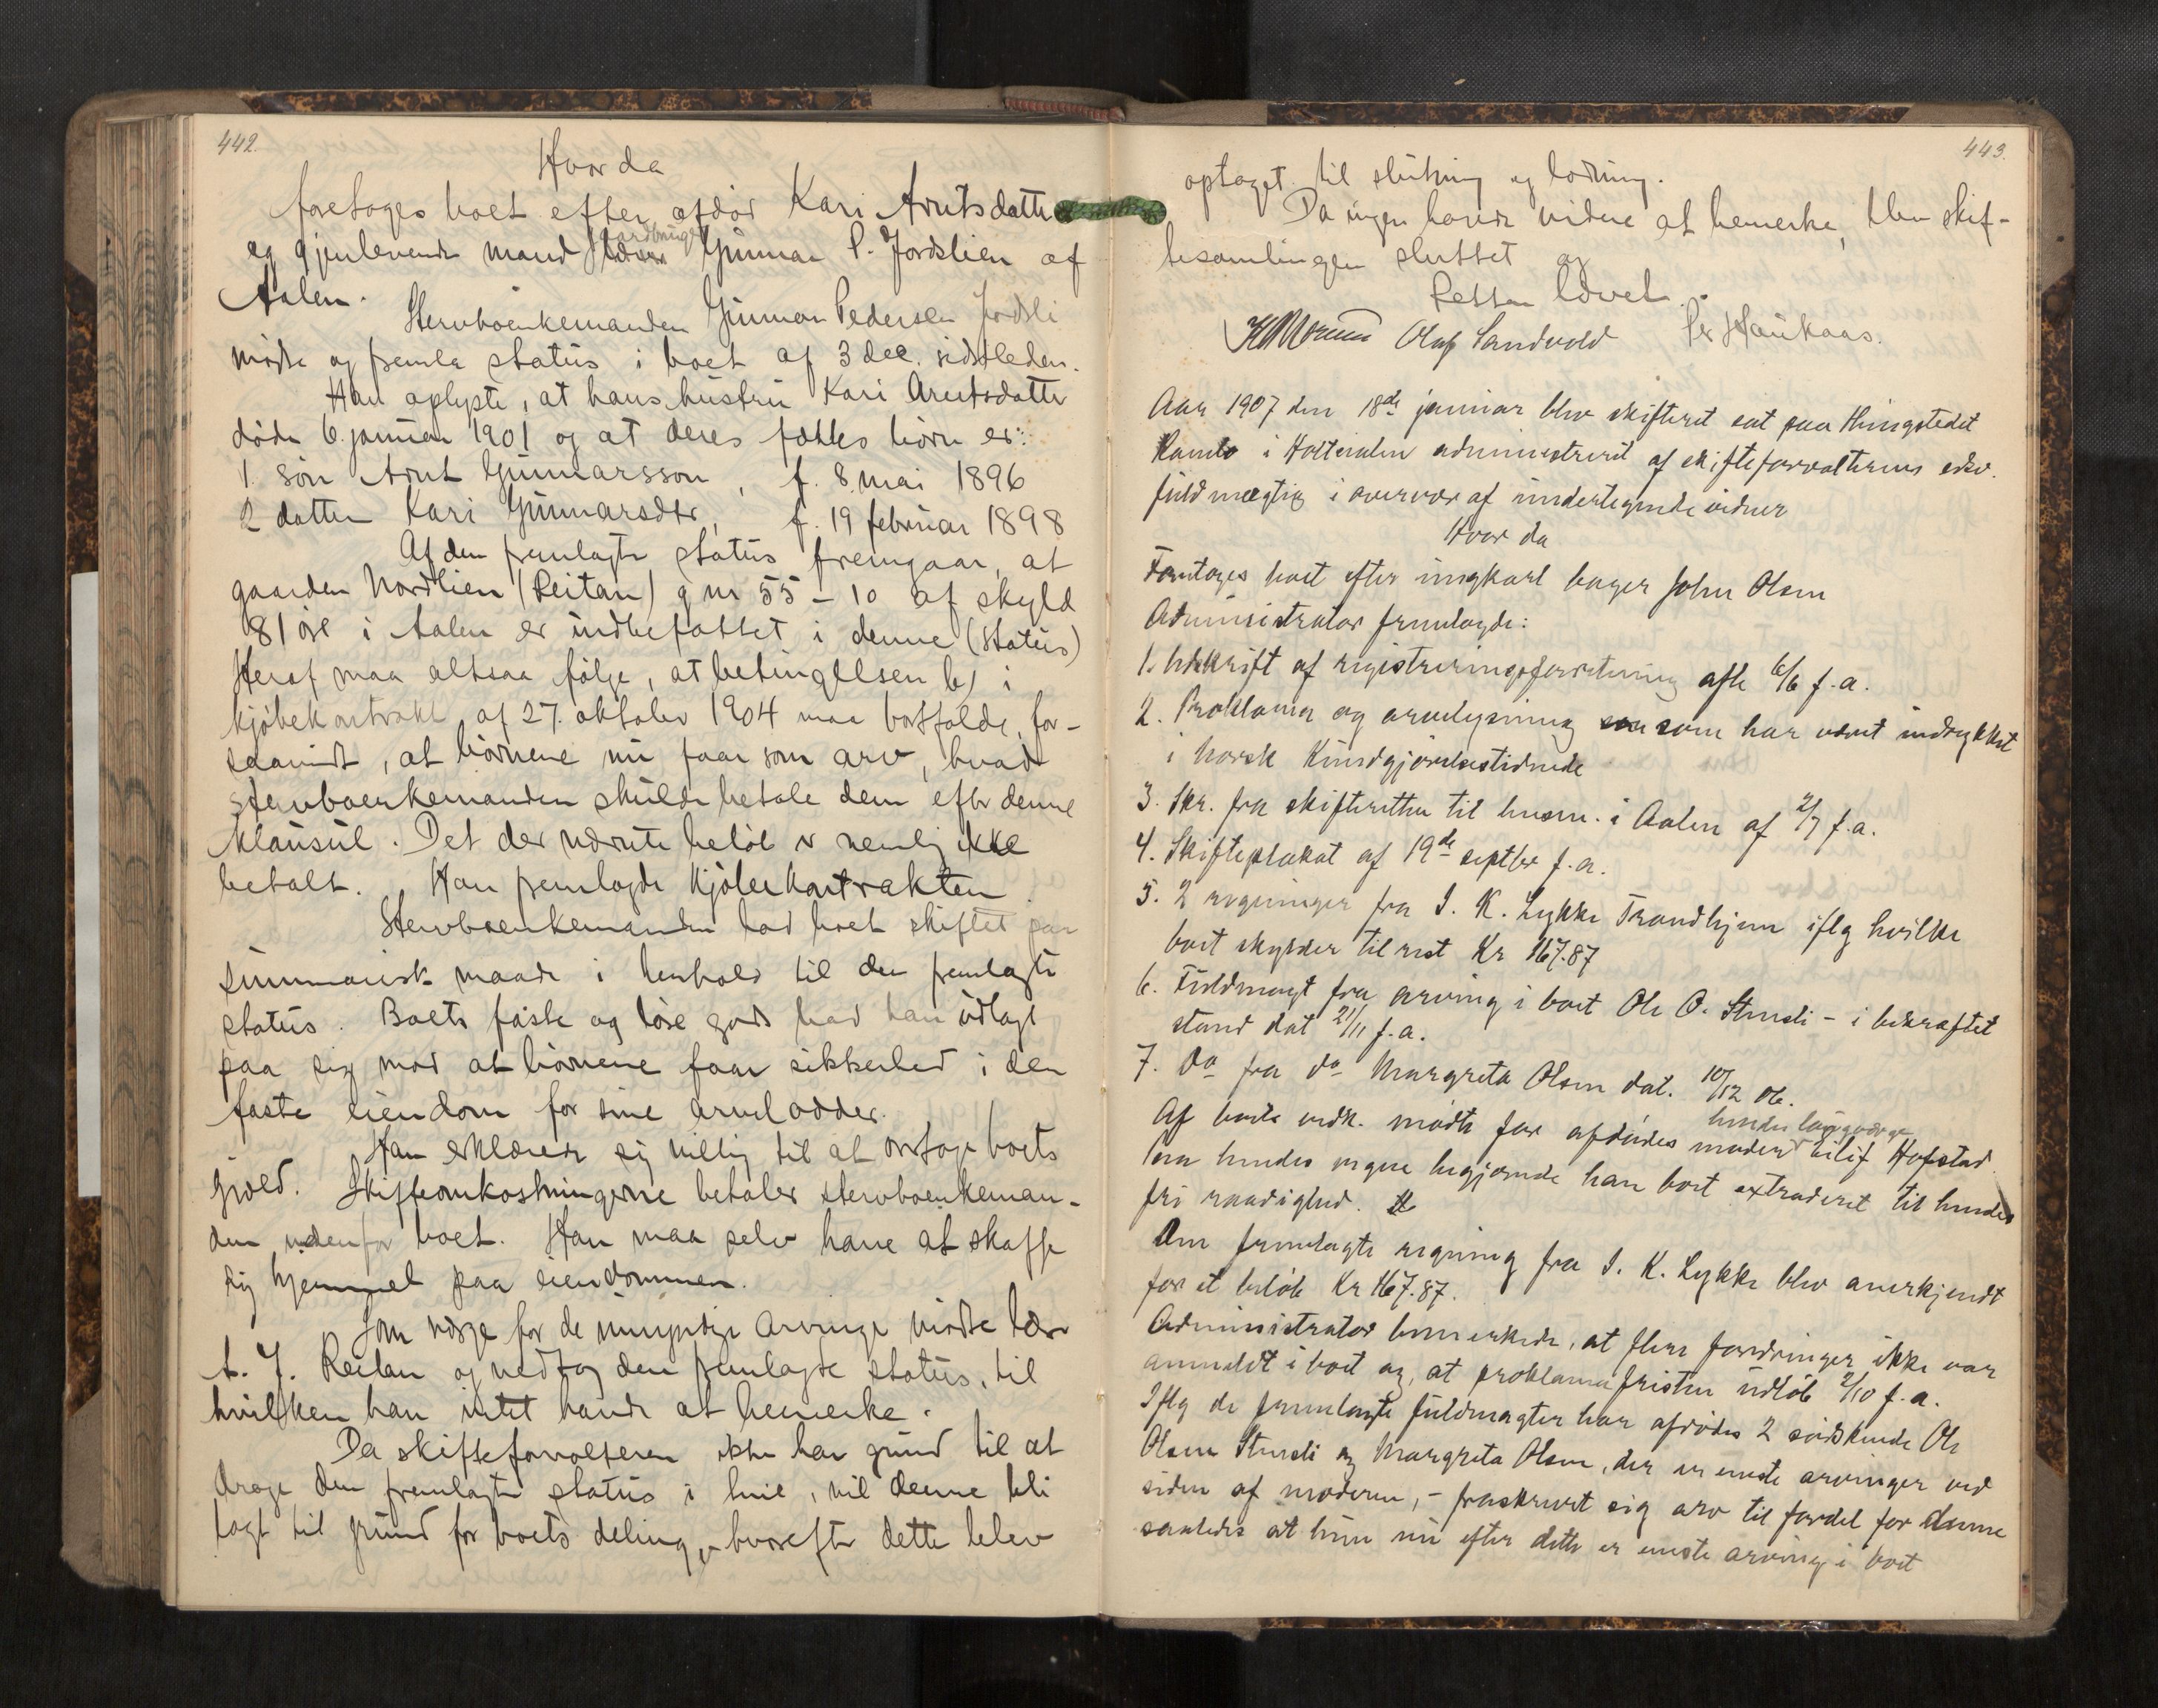 442.
Hvor da
foretoges boet efter afdød Kari Arntsdatter
og gjenlevende mand gaardbruger Gunnar P. Jordslien af
Aalen.
Stervboenkemanden Gunnar Pedersen Jordsli
mødte og fremla status i boet af 3 dec. sidstleden.
Han oplyste, at hans hustru Kari Arntsdatter
døde 6. januar 1901 og at deres fælles børn er:
1. søn Arnt Gunnarsson, f. 8. mai 1896
2 datter Kari Gunnarsdtr, f. 19 februar 1898
Af den fremlagte status fremgaar, at
gaarden Nordlien (Reitan) g nr 55 - 10 af skyld
81 øre i Aalen er indbefattet i denne (status)
Heraf maa altsaa følge, at betingelsen b) i
kjøbekontrakt af 27. oktober 1904 maa bortfalde, for-
saavidt, at børnene nu faar som arv, hvad
stervboenkemanden skulde betale dem efter denne
klausul. Det der nævnte beløb er nemlig ikke
betalt. Han fremlagde kjøbekontrakten.
Stervboenkemanden bad boet skiftet paa
summarisk maade i henhold til den fremlagte
status. Boets faste og løse gods bad han udlagt
paa sig mod at børnene faar sikkerhed i den
faste eiendom for sine arvelodder.
Han erklærede sig villig til at overtage boets
gjæld. Skifteomkostningerne betaler stervboenkeman-
den udenfor boet. Han maa selv have at skaffe
sig hjemmel paa eiendommen.
Som værge for de umyndige arvinge mødte
A. J. Reitan og vedtog den fremlagte status, til
hvilken han intet havde at bemerke.
Da skifteforvalteren ikke har grund til at
drage den fremlagte status i tvil, vil denne bli
lagt til grund for boets deling, hvorefter dette blev
443.
optaget til slutning og lodning.
Da ingen havde videre at bemerke, blev skif-
tesamlingen sluttet og
Retten hævet.
Olaf Sandvold Per Haukaas.
Aar 1907 den 18de januar blev skifteret sat paa thingstedet
Ramlo i Holtaalen administreret af skifteforvalterens edsv.
fuldmægtig i overvær af undertegnede vidner
Hvor da
Foretoges boet efter ungkarl bager John Olsen
Administrator fremlagde:
1. Udskrift af registreringsforretning afh 6/6 f.a.
2. Proklama og arvelysning som har været indrykket
i Norsk Kundgjørelsestidende
3. Skr. fra skifteretten til lensm. i Aalen af 2/7 f.a.
4. Skifteplakat af 19de septbr f.a.
5. 2 regninger fra I. K. Lykke Trondhjem iflg hvilke
boet skylder til rest Kr 167.87
6. Fuldmagt fra arving i boet Ole O. Stensli - i bekræftet
stand dat 21/11 f.a.
7. Do fra do Margreta Olsen dat. 10/12 06.
Af boets vedk. mødte for afdødes moder hendes laugværge Eilif Hofstad.
Paa hendes vegne begjærede han boet extraderet til hendes
fri raadighed.
Den fremlagte regning fra I. K. Lykke blev anerkjendt
for et beløb Kr 167.87.
Administrator bemerkede, at flere fordringer ikke var
anmeldt i boet og, at proklamafristen udløb 2/10 f.a.
Iflg de fremlagte fuldmagter har afdødes 2 sødskende Ole
Olsen Stensli og Margreta Olsen, der er eneste arvinger ved
siden af moderen, - fraskrevet sig arv til fordel for denne
saaledes at hun nu efter dette er eneste arving i boet